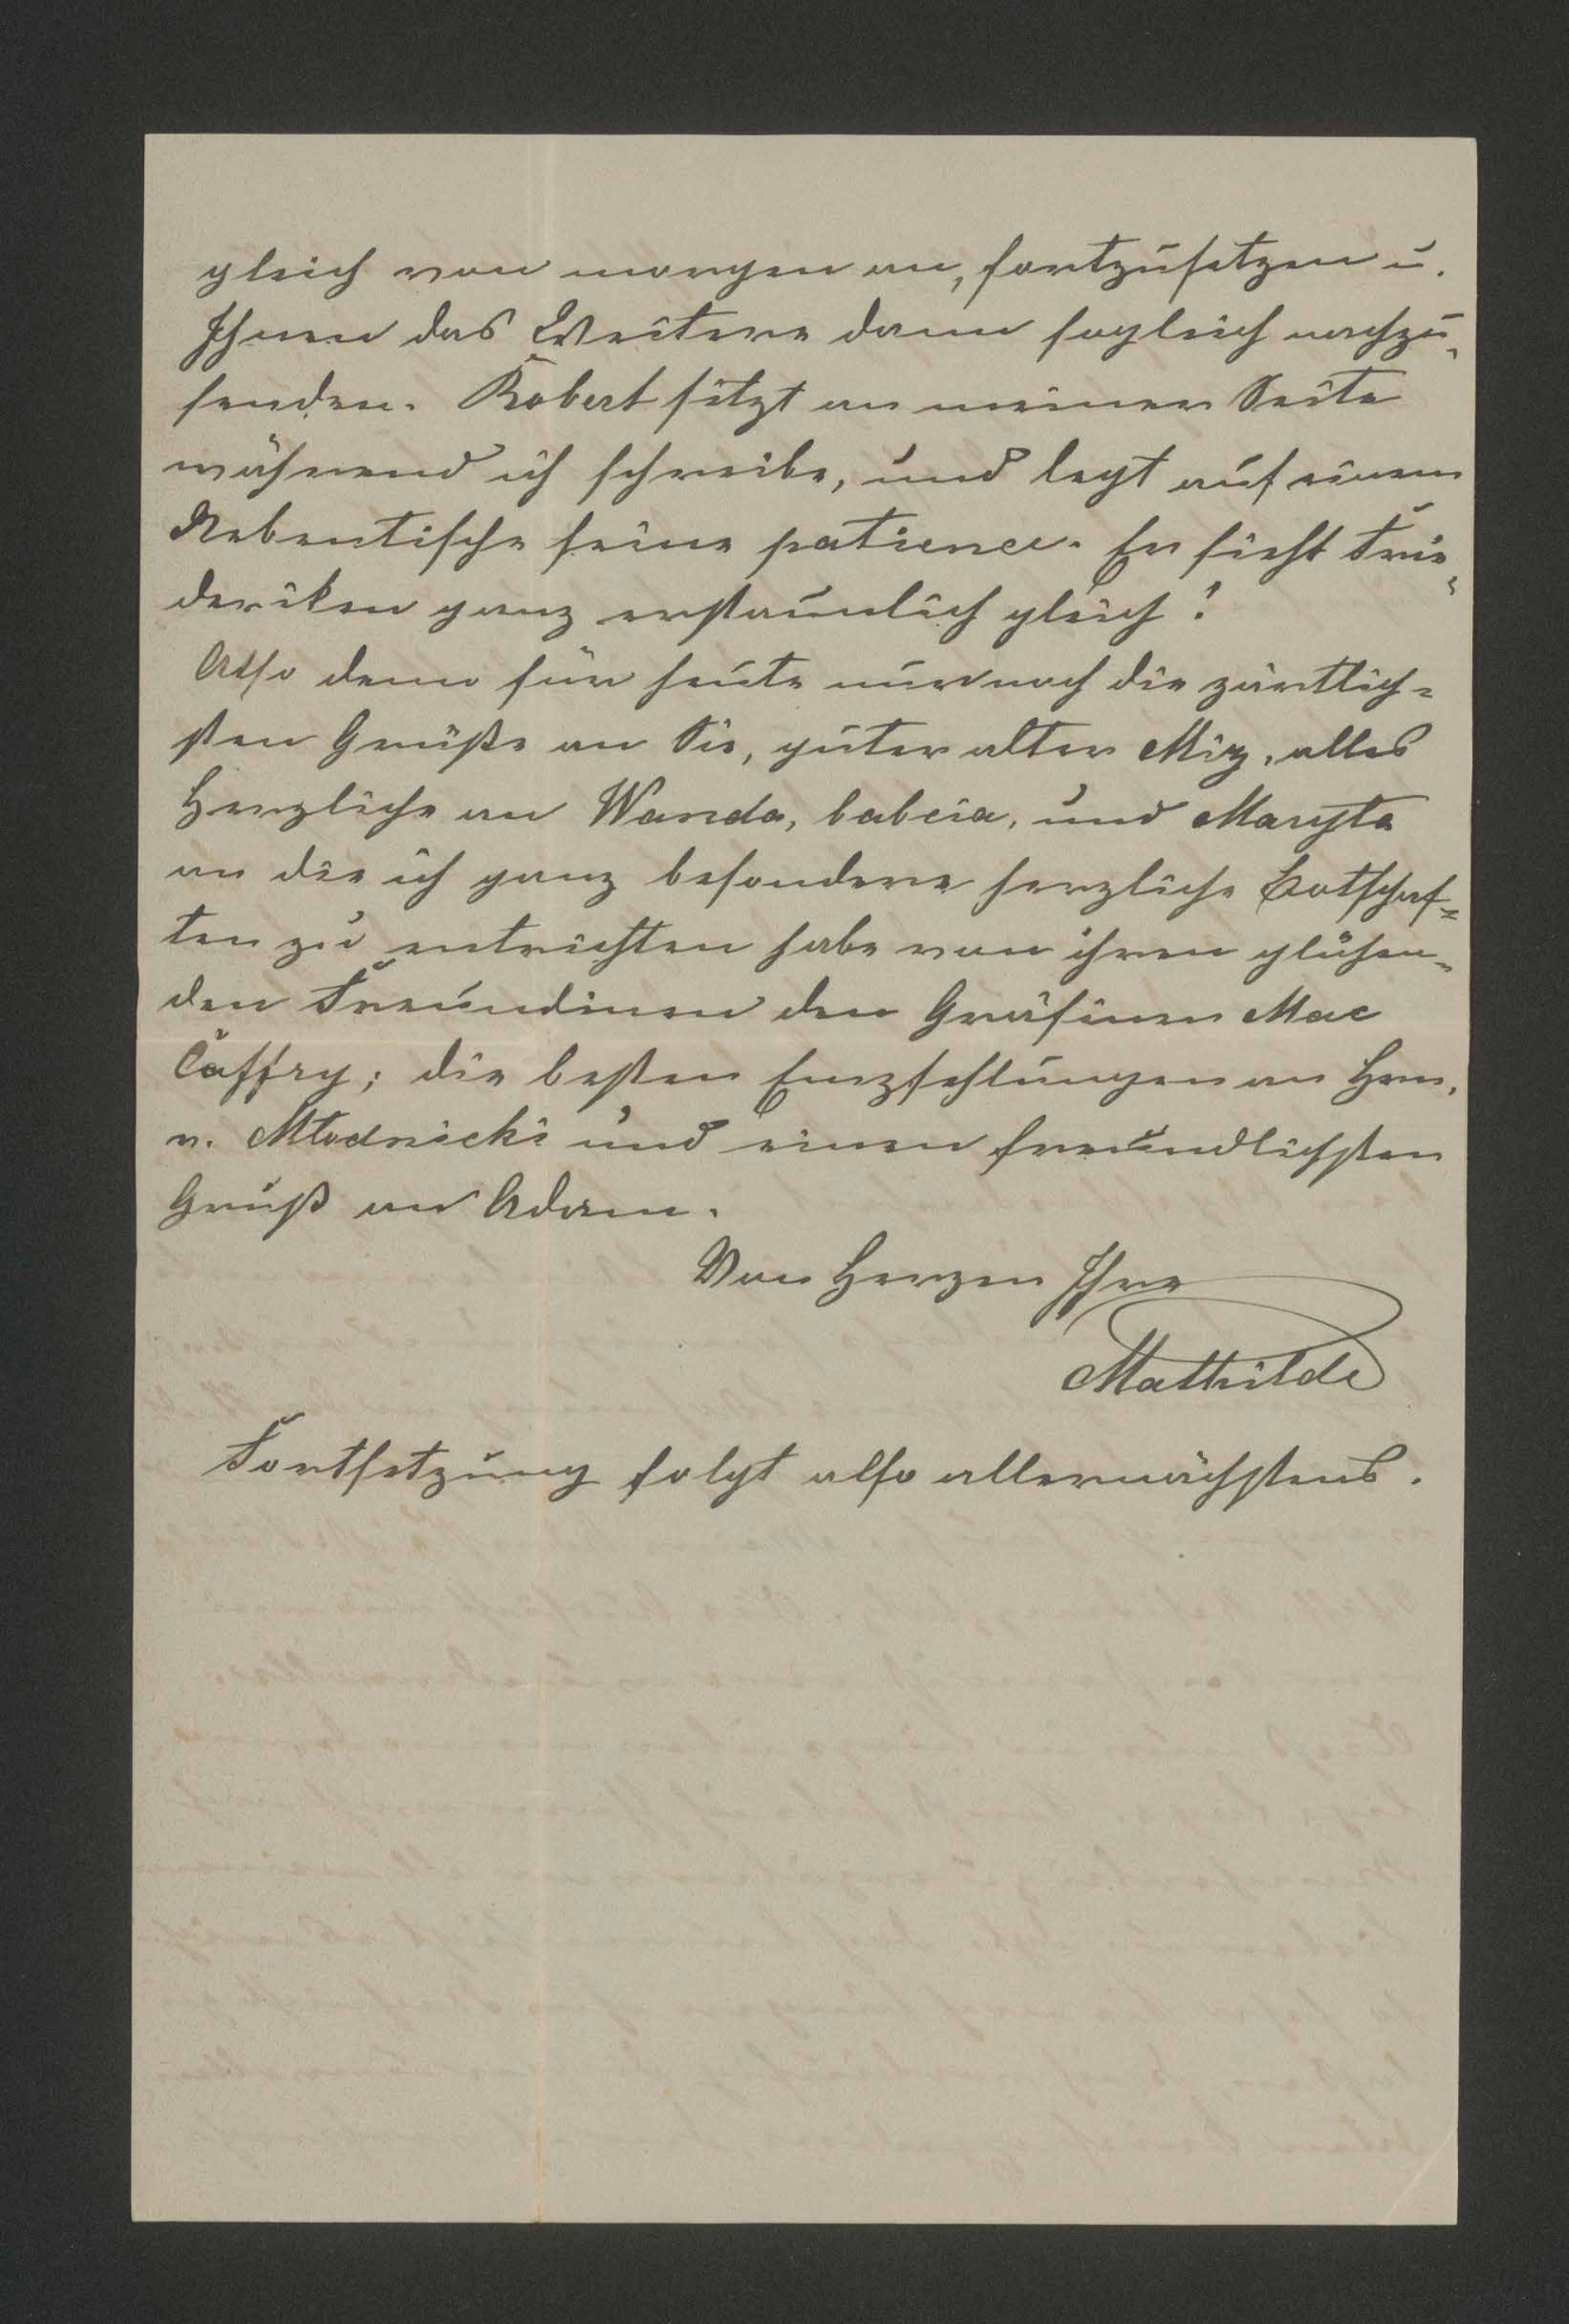 gleich von morgen an, fortzusetzen u.
Ihnen das Weitere dann sogleich nachzu-
senden. Robert sitzt an meiner Seite
während ich schreibe, und legt auf einem
Nebentische seine patience. Er sieht Frie-
deriken ganz erstaunlich gleich!
Also denn für heute nur noch die zärtlich=
sten Grüße an Sie, guter alter Miz, alles
Herzliche an Wanda, babcia, und Maryta
an die ich ganz besondere herzliche Botschaf=
ten zu entrichten habe von ihren glühen-
den Freundinen den Gräfinen Mac
Caffry; die besten Empfehlungen an Hrn.
v. Młodnicki und einen freundlichsten
Gruß an Adam.
Von Herzen Ihre
Mathilde
Fortsetzung folgt also allernächstens.